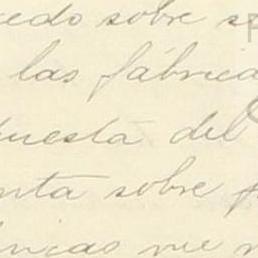 cedo sobre s
las fábrica
uesta del
nta sobre f
nicas me n